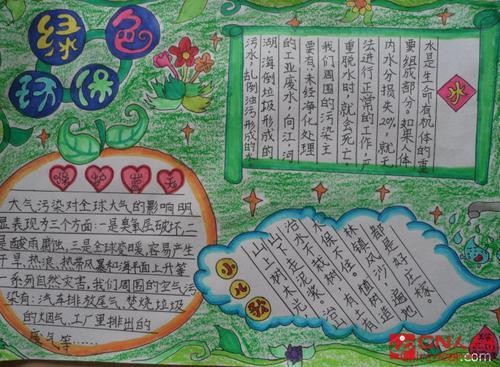 绿色
环保
水
水是生命有机体的重
要组成部分,如果人体
内水分损失20%,就无
法进行正常的工作,严
重脱水时,就会死亡,
我们周围的污染主
要有:未经净化处理
的工业废水,向江,河
湖,海倒垃圾形成的
污水,乱倒油污形成的水
保护蓝天
大气污染对全球大气的影响明
显表现为三个方面:一是臭氧层破坏,二
是酸雨腐蚀,三是全球变暖,容易产生
干旱,热浪,热带风暴和海平面上升等
系列自然灾害,我们周围的空气污
染有:汽车排放尾气,焚烧垃圾
的烟气,工厂里排出的
废气等……
小儿歌
山上树木光
山下走泥浆。治
水不栽树,有土
林镇风沙,遍地
都是好庄稼。
.com